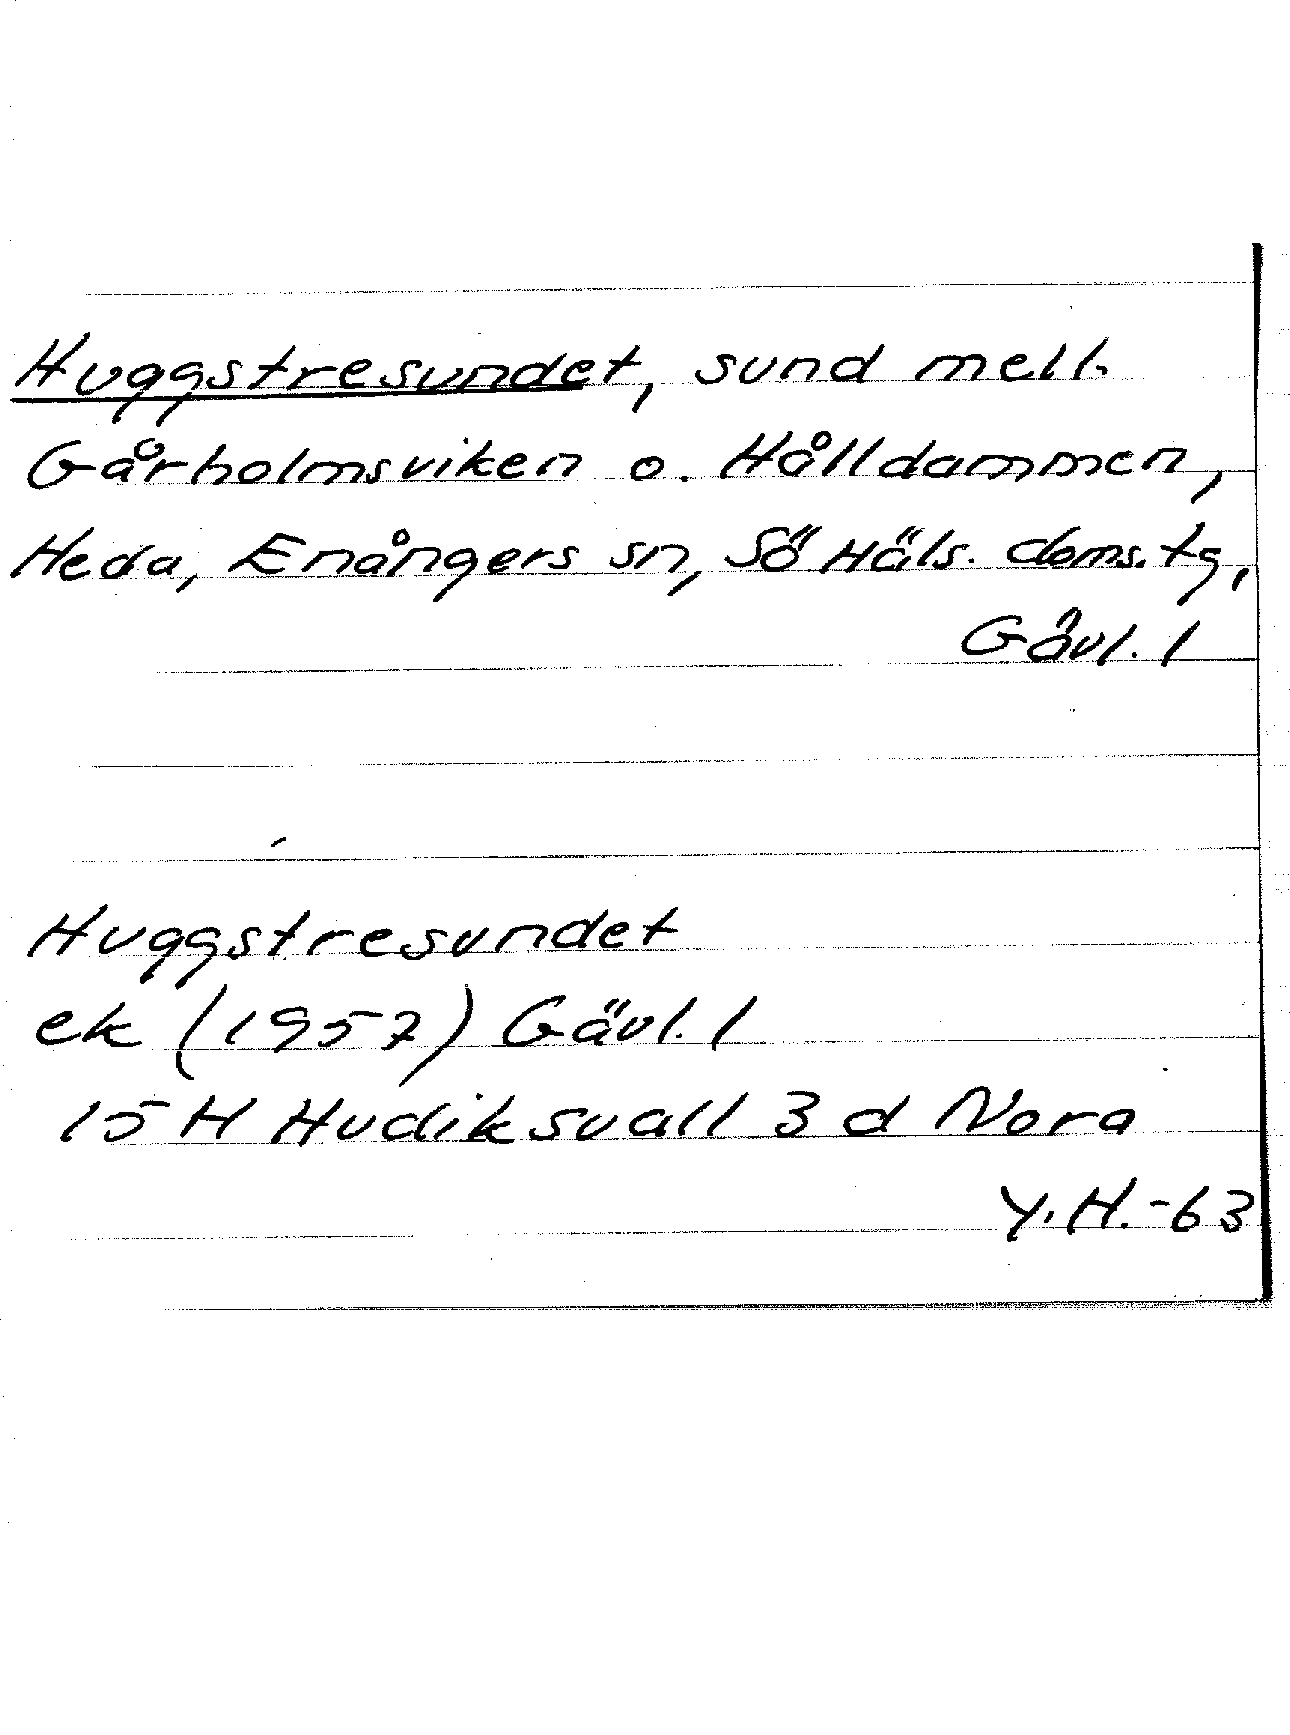 Huggstresundet, sund mell.
Gårholmsviken o. Hålldammen,
Heda, Enångers sn, Sö Häls. doms.tg,
Gävl. l
Huggstresundet
ek (1957) Gävl. l
15 H Hudiksvall 3 d Nora
Y.H.-63